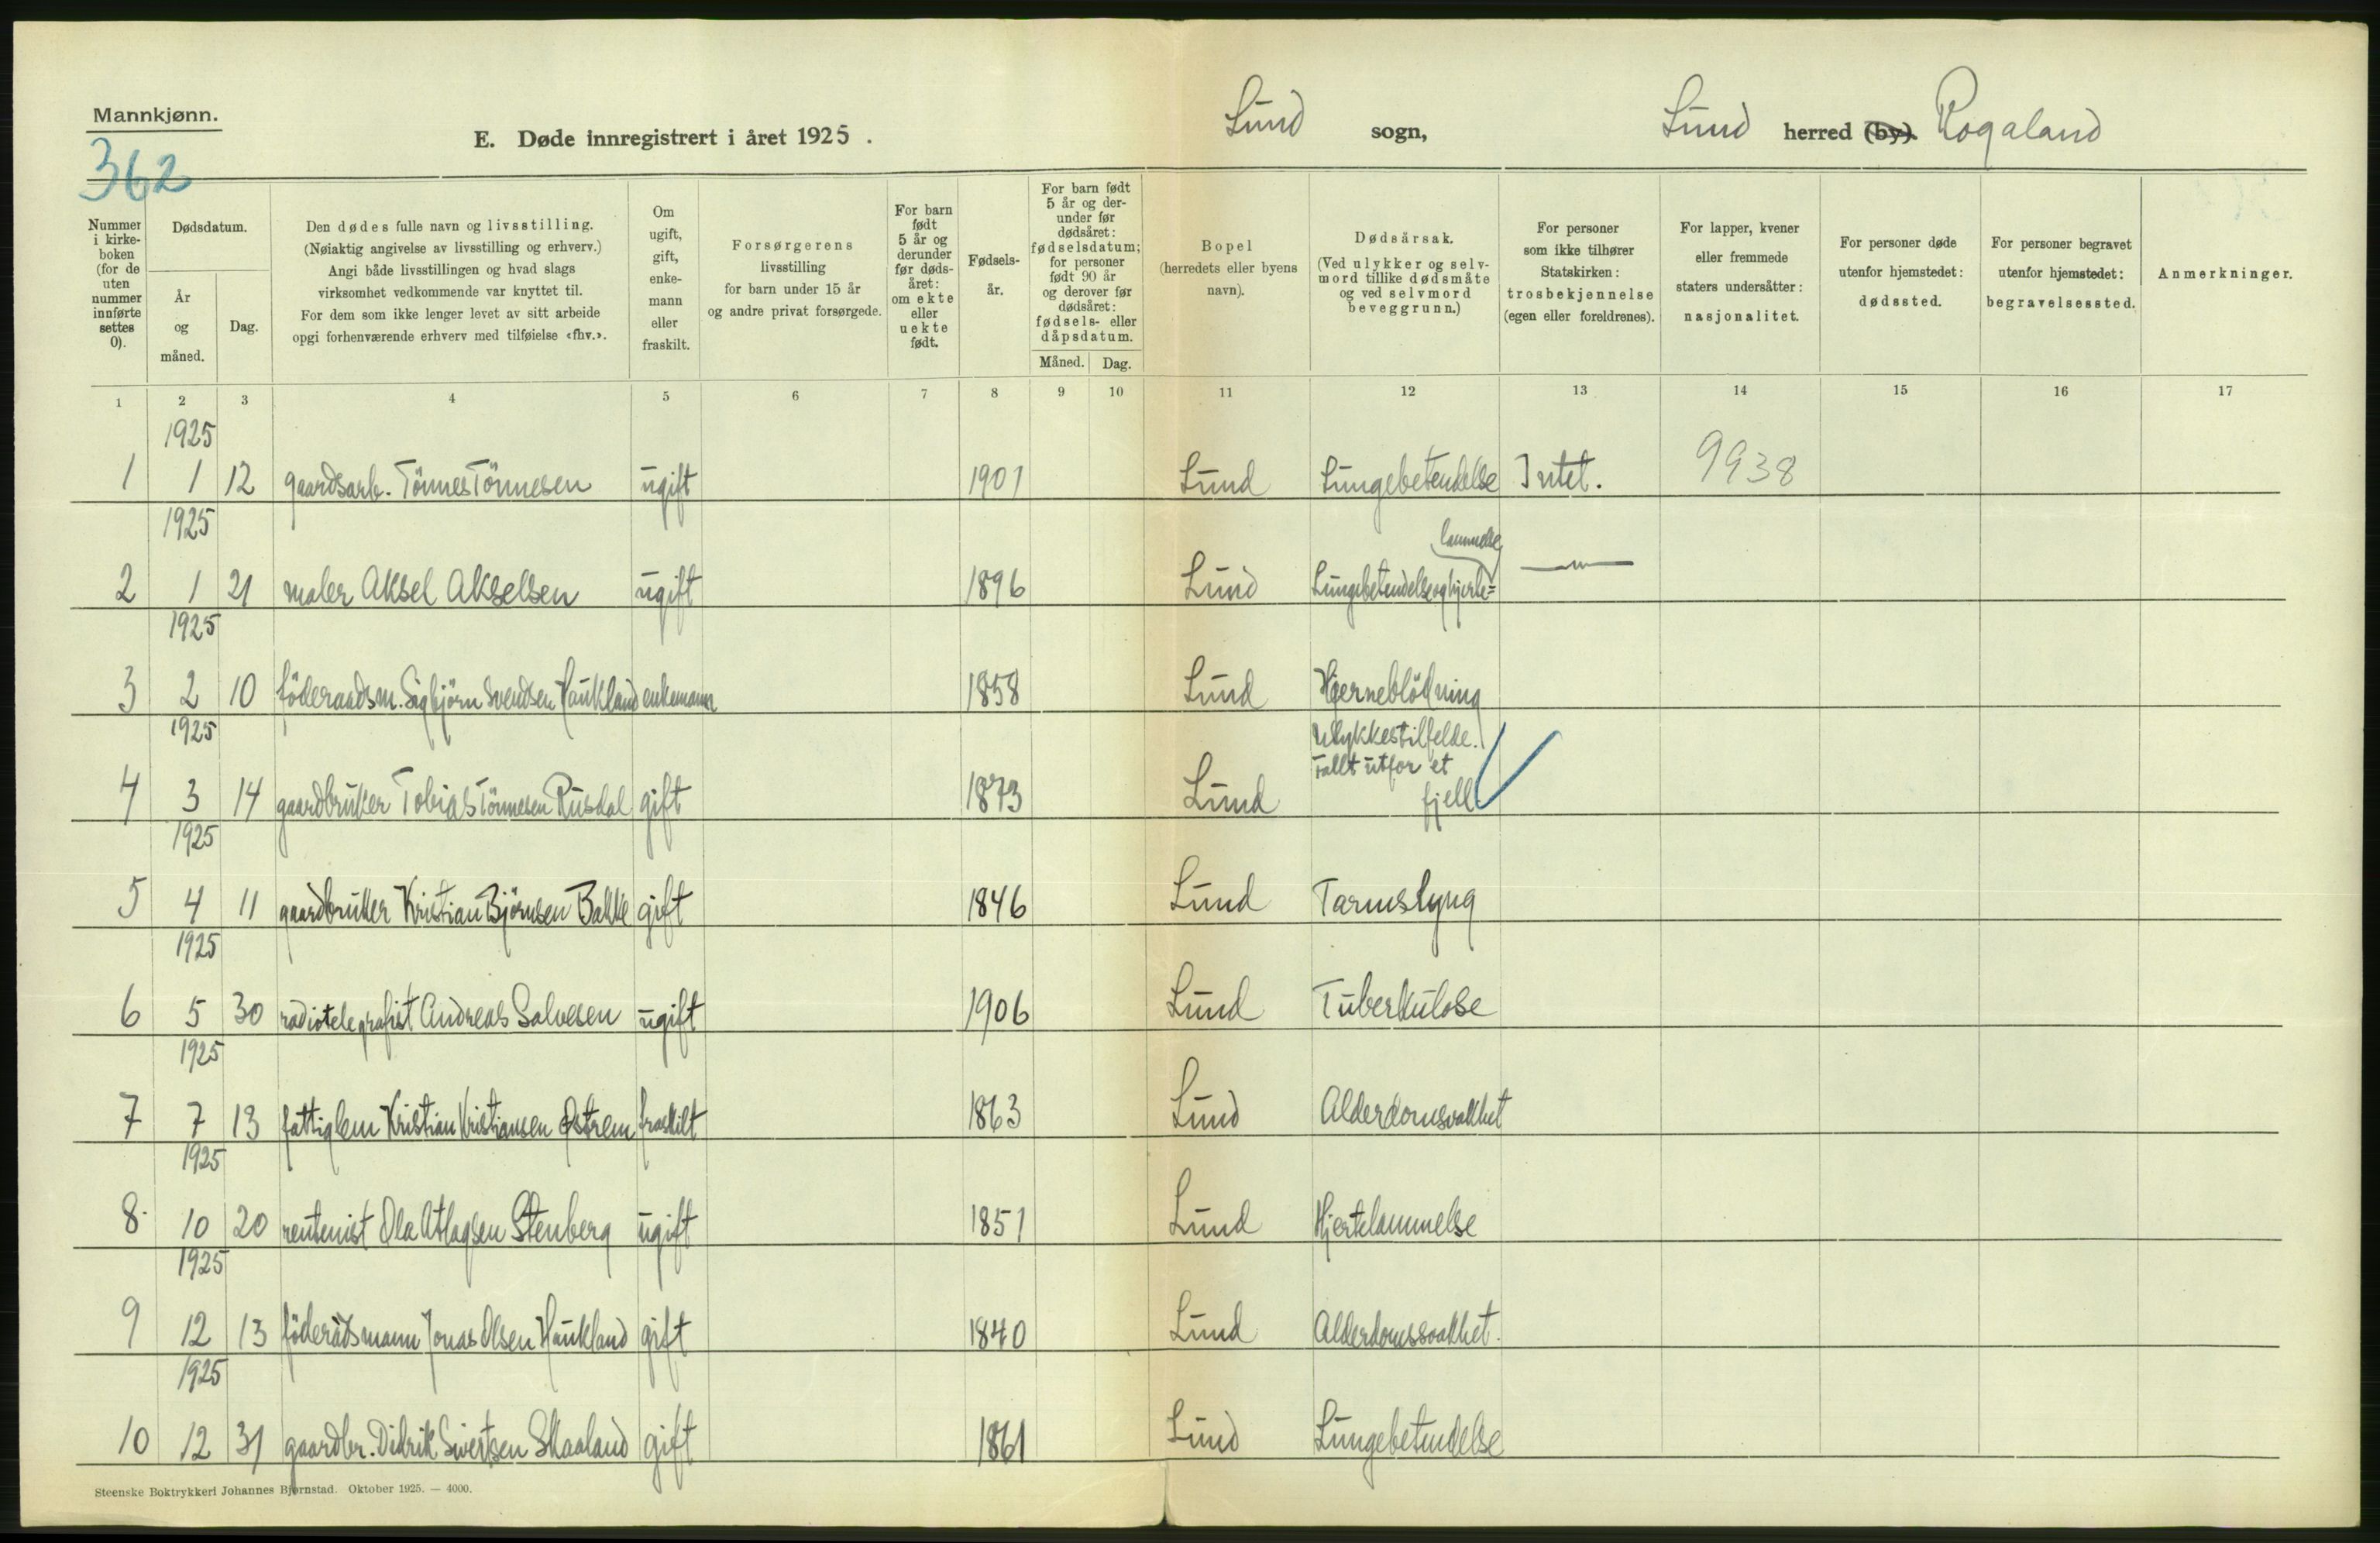 Mannkjønn.
362
E. Døde innregistrert i året 1925 .
Lund sogn, Lund herred (by). Rogaland
Nummer i kirke-boken (for de uten nummer innførte settes 0).
Dødsdatum.
År og måned.
Dag.
Den dødes fulle navn og livsstilling.
(Nøiaktig angivelse av livsstilling og erhverv.)
Angi både livsstillingen og hvad slags
virksomhet vedkommende var knyttet til.
For dem som ikke lenger levet av sitt arbeide
opgi forhenværende erhverv med tilføielse «fhv.».
Om ugift, gift, enke-mann eller fraskilt.
Forsørgerens
livsstilling
for barn under 15 år
og andre privat forsørgede.
For barn født 5 år og derunder før døds-året: om ekte eller uekte født.
Fødsels-år.
For barn født 5 år og der-under før dødsåret: fødselsdatum; for personer født 90 år og derover før dødsåret: fødsels- eller dåpsdatum.
Måned. Dag.
Bopel
(herredets eller byens
navn).
Dødsårsak.
(Ved ulykker og selv-
mord tillike dødsmåte
og ved selvmord
beveggrunn.)
For personer
som ikke tilhører
Statskirken:
trosbekjennelse
(egen eller foreldrenes).
For lapper, kvener
eller fremmede
staters undersåtter:
nasjonalitet.
For personer døde
utenfor hjemstedet:
dødssted.
For personer begravet
utenfor hjemstedet:
begravelsessted.
Anmerkninger.
1 2 3 4 5 6 7 8 9 10 11 12 13 14 15 16 17
1925
1 1 12 gaardsarb. Tönnes Tönnesen ugift 1901 Lund Lungebetendelse Intet. 9938
1925
lammelse
2 1 21 maler Aksel Akselsen ugift 1896 Lund Lungebetendelse og hjerte= —"—
1925
3 2 10 föderaadsm. Sigbjörn Svendsen Haukland enkemann 1858 Lund Hjerneblödning
1925 Ulykkestilfelde.
Fallt utfor et
4 3 14 gaardbruker Tobias Tönnesen Rusdal gift 1873 Lund fjell
1925
5 4 11 gaardbruker Kristian Björnsen Bakke gift 1846 Lund Tarmslyng
1925
6 5 30 radiotelegrafist Andreas Salvesen ugift 1906 Lund Tuberkulose
1925
7 7 13 fattiglem Kristian Kristiansen Østrem fraskilt 1863 Lund Alderdomsvakhet
1925
8 10 20 rentenist Ola Atlagsen Stenberg ugift 1851 Lund Hjertelammelse
1925
9 12 13 föderådsmann Jonas Olsen Haukland gift 1840 Lund Alderdomssvakhet.
1925
10 12 31 gaardbr. Didrik Sivertsen Skaaland gift 1861 Lund Lungebetendelse
Steenske Boktrykkeri Johannes Bjørnstad. Oktober 1925. — 4000.